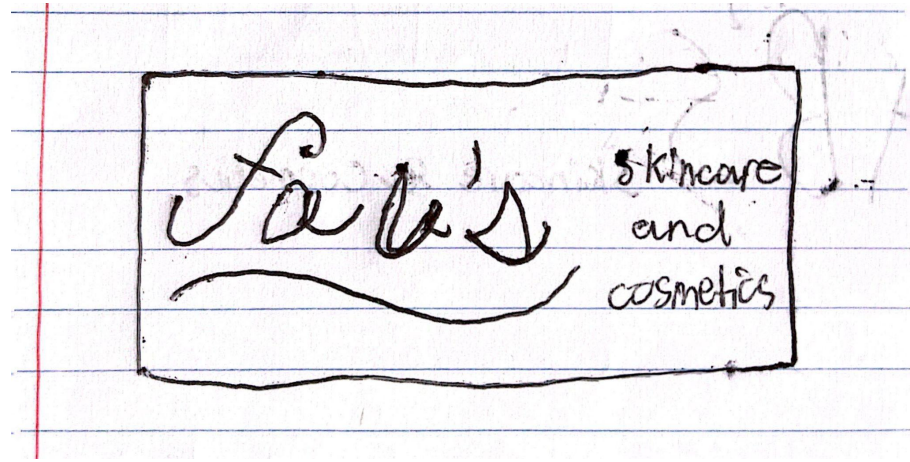 Fab's
skincare
and
cosmetics